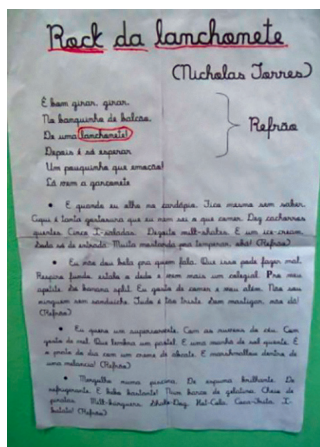 Rock da lanchonete
(Nicholas Torres)
É bom girar, girar,
No banquinho de balcão,
De uma lanchonete!
Depois é só esperar
Um pouquinho que emoção!
Lá vem a garçonete
Refrão
• E quando eu olho no cardápio. Fico mesmo sem saber.
Aqui é tanta gostosura que eu nem sei o que comer. Dez cachorros
quentes. Cinco X-saladas. Dezoito milk-shakes. E um ice-cream.
Isso só de entrada. Muita mostarda pra temperar, oká! (Refrão)
• Eu não dou bola pra quem fala. Que isso pode fazer mal.
Respiro fundo, estalo o dedo e vem mais um colegial. Pro meu
apetite. Só banana split. Eu gosto de comer e meu além. Não sou
ninguém sem sanduíche. Tudo é tão triste. Sem mastigar, não dá!
(Refrão)
• Eu quero um supersorvete. Com as nuvens do céu. Com
gosto de mel. Que lembra um pastel. E uma manhã de sol quente. E
a ponte do dia com um creme de abacate. E marshmallow dentro de
uma melancia! (Refrão)
• Mergulho numa piscina. De espuma brilhante. De
refrigerante. E bebo bastante! Num barco de gelatina. Cheio de
Milk-búrguer. Shake-Dog. Hot-Cola. Coca-Frita. X-
batata! (Refrão)